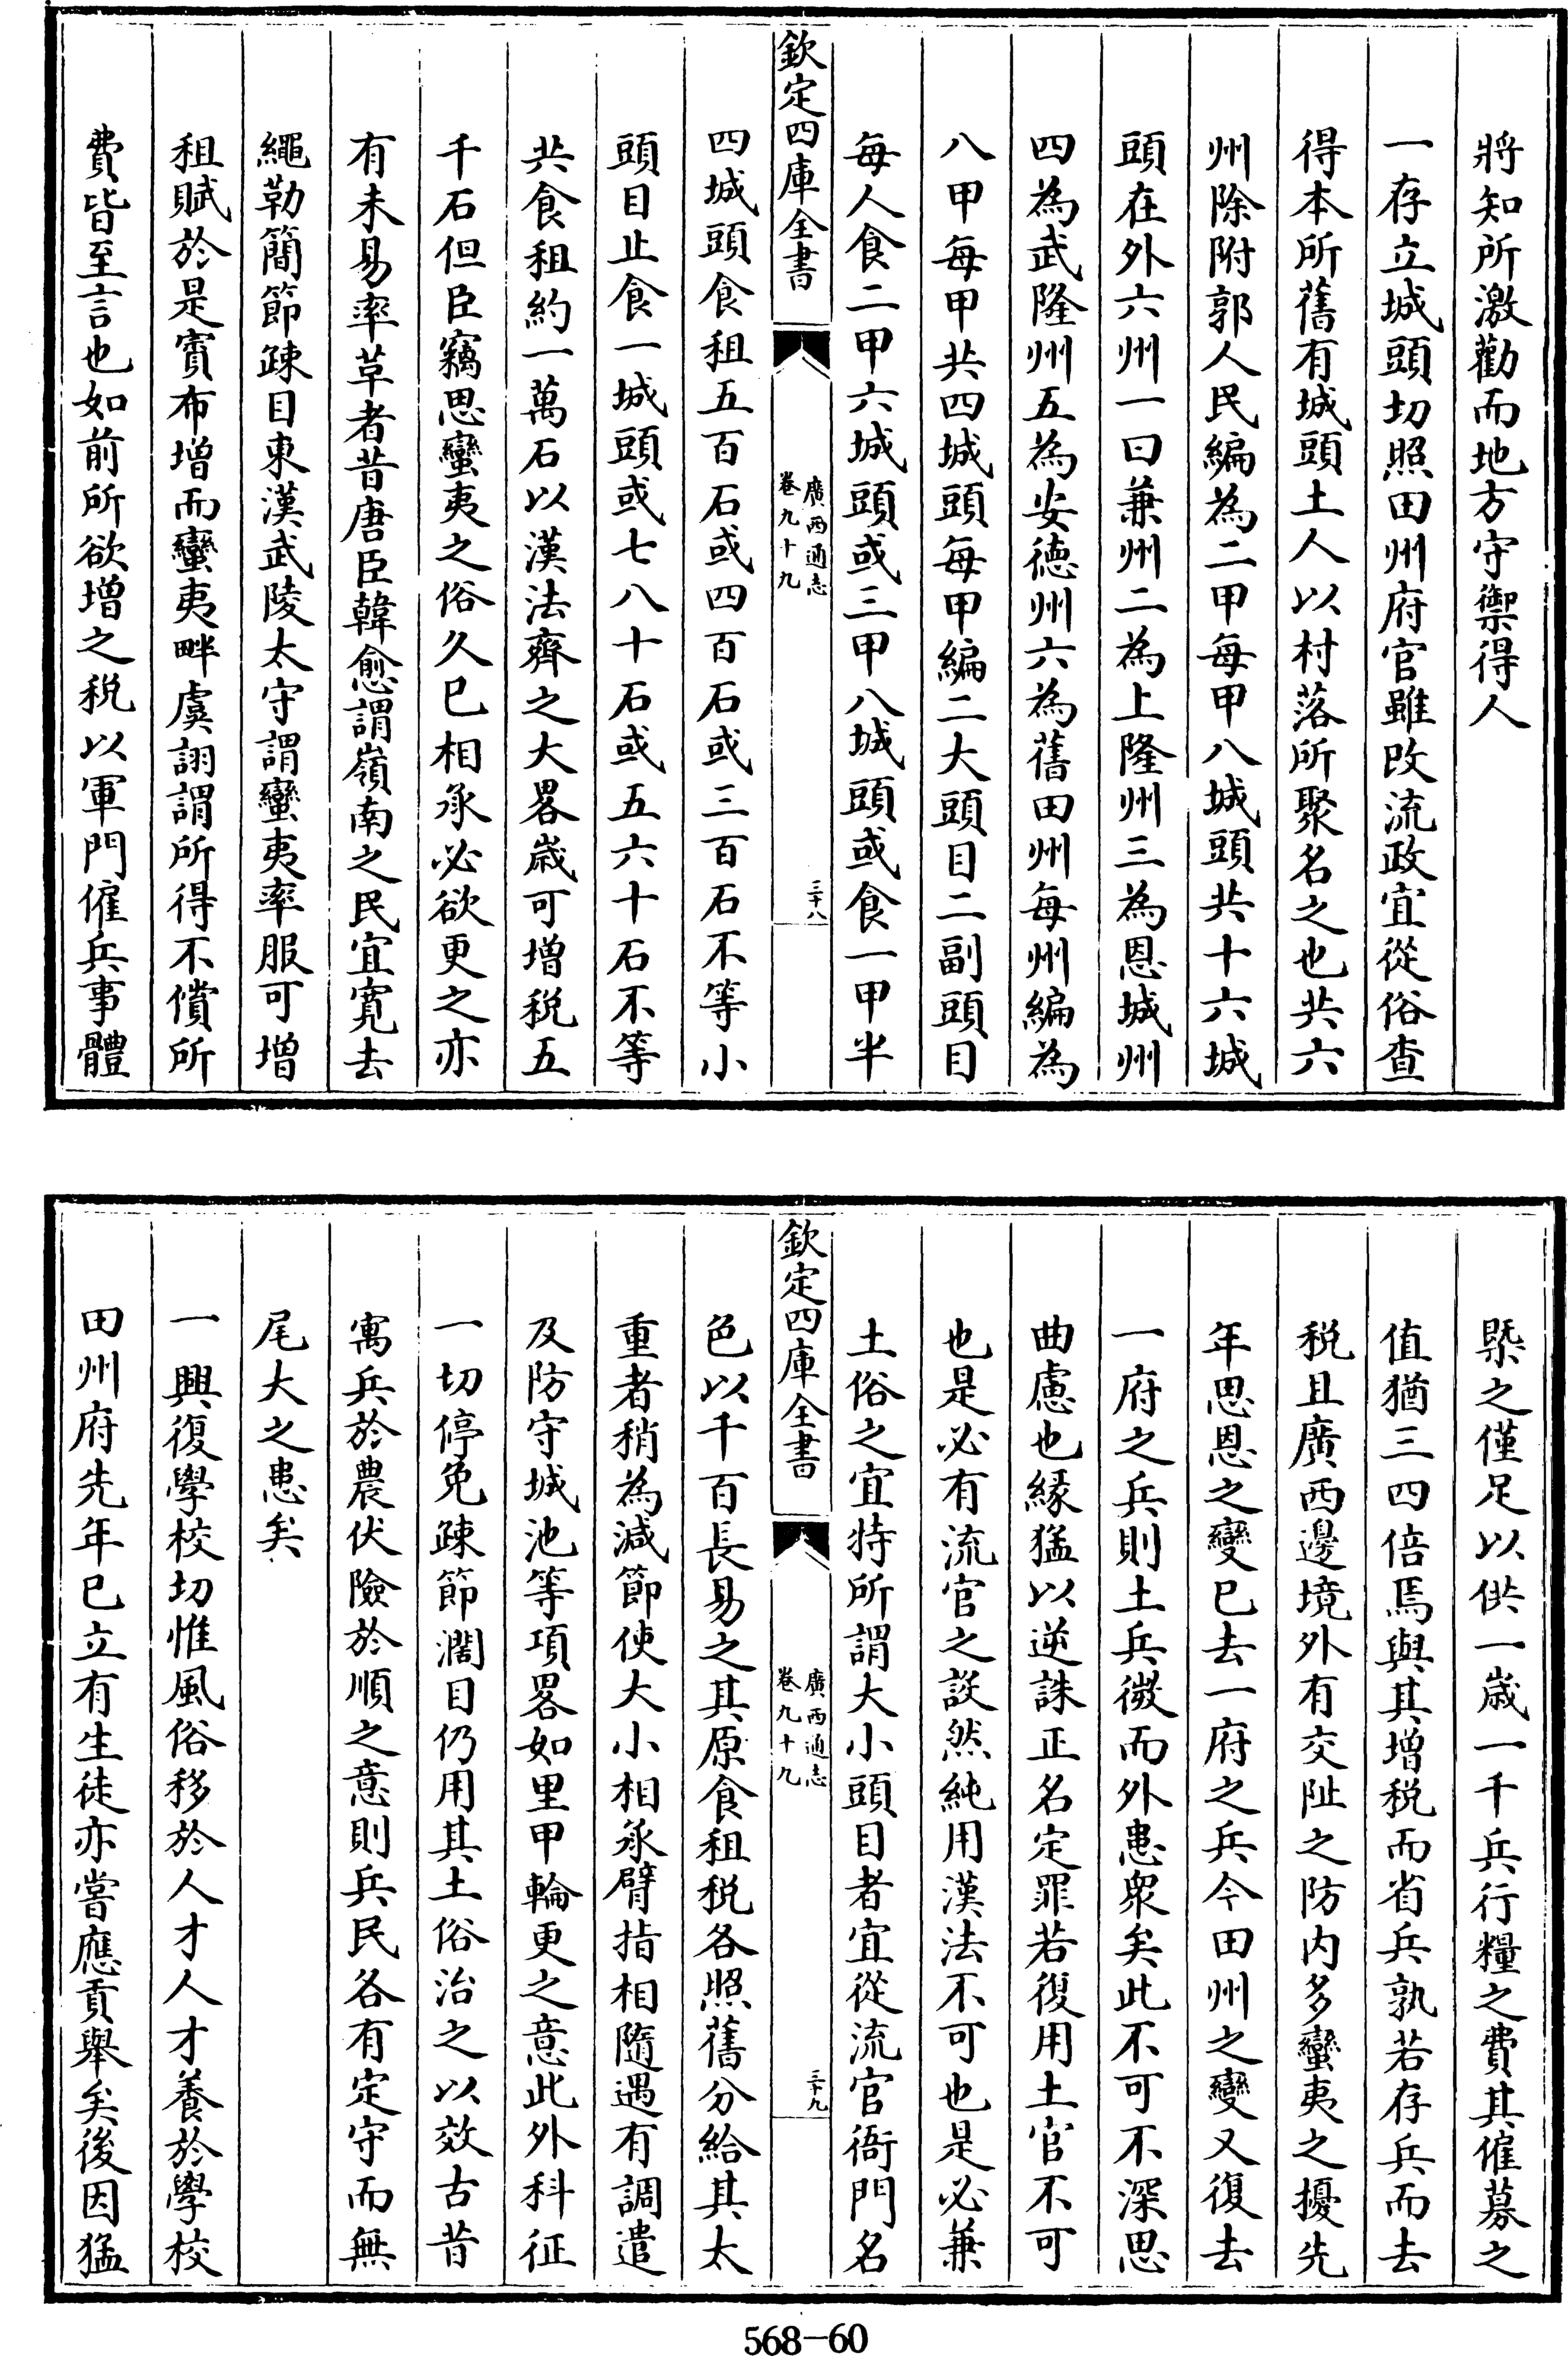 將知所激勸而地方守禦得人
一存立城頭切照田州府官雖改流政宜從俗查
得本所舊有城頭土人以村落所聚名之也共六
州除附郭人民編為二甲每甲八城頭共十六城
頭在外六州一曰兼州二為上隆州三為恩城州
四為武隆州五為安德州六為舊田州每州編為
八甲每甲共四城頭每甲編二大頭目二副頭目
每人食二甲六城頭或三甲八城頭或食一甲半
欽定四庫全書
廣西通志
卷九十九
三十八
四城頭食租五百石或四百石或三百石不等小
頭目止食一城頭或七八十石或五六十石不等
共食租約一萬石以漢法齊之大畧歲可增稅五
千石但臣竊思蠻夷之俗久已相承必欲更之亦
有未易率草者昔唐臣韓愈謂嶺南之民宜寬去
繩勒簡節疎目東漢武陵太守謂蠻夷率服可增
租賦於是賓布增而蠻夷畔虞詡謂所得不償所
費皆至言也如前所欲增之稅以軍門僱兵事體
槩之僅足以供一歲一千兵行糧之費其僱募之
值猶三四倍焉與其增稅而省兵孰若存兵而去
稅且廣西邊境外有交阯之防内多蠻夷之擾先
年思恩之變已去一府之兵今田州之變又復去
一府之兵則土兵微而外患衆矣此不可不深思
曲慮也緣猛以逆誅正名定罪若復用土官不可
也是必有流官之設然純用漢法不可也是必兼
土俗之宜特所謂大小頭目者宜從流官衙門名
欽定四庫全書
廣西通志
卷九十九
三十九
色以千百長易之其原食租稅各照舊分給其太
重者稍為減節使大小相承臂指相隨遇有調遣
及防守城池等項畧如里甲輪更之意此外科征
一切停免疎節濶目仍用其土俗治之以效古昔
寓兵於農伏險於順之意則兵民各有定守而無
尾大之患矣
一興復學校切惟風俗移於人才人才養於學校
田州府先年已立有生徒亦嘗應貢舉矣後因猛
568-60